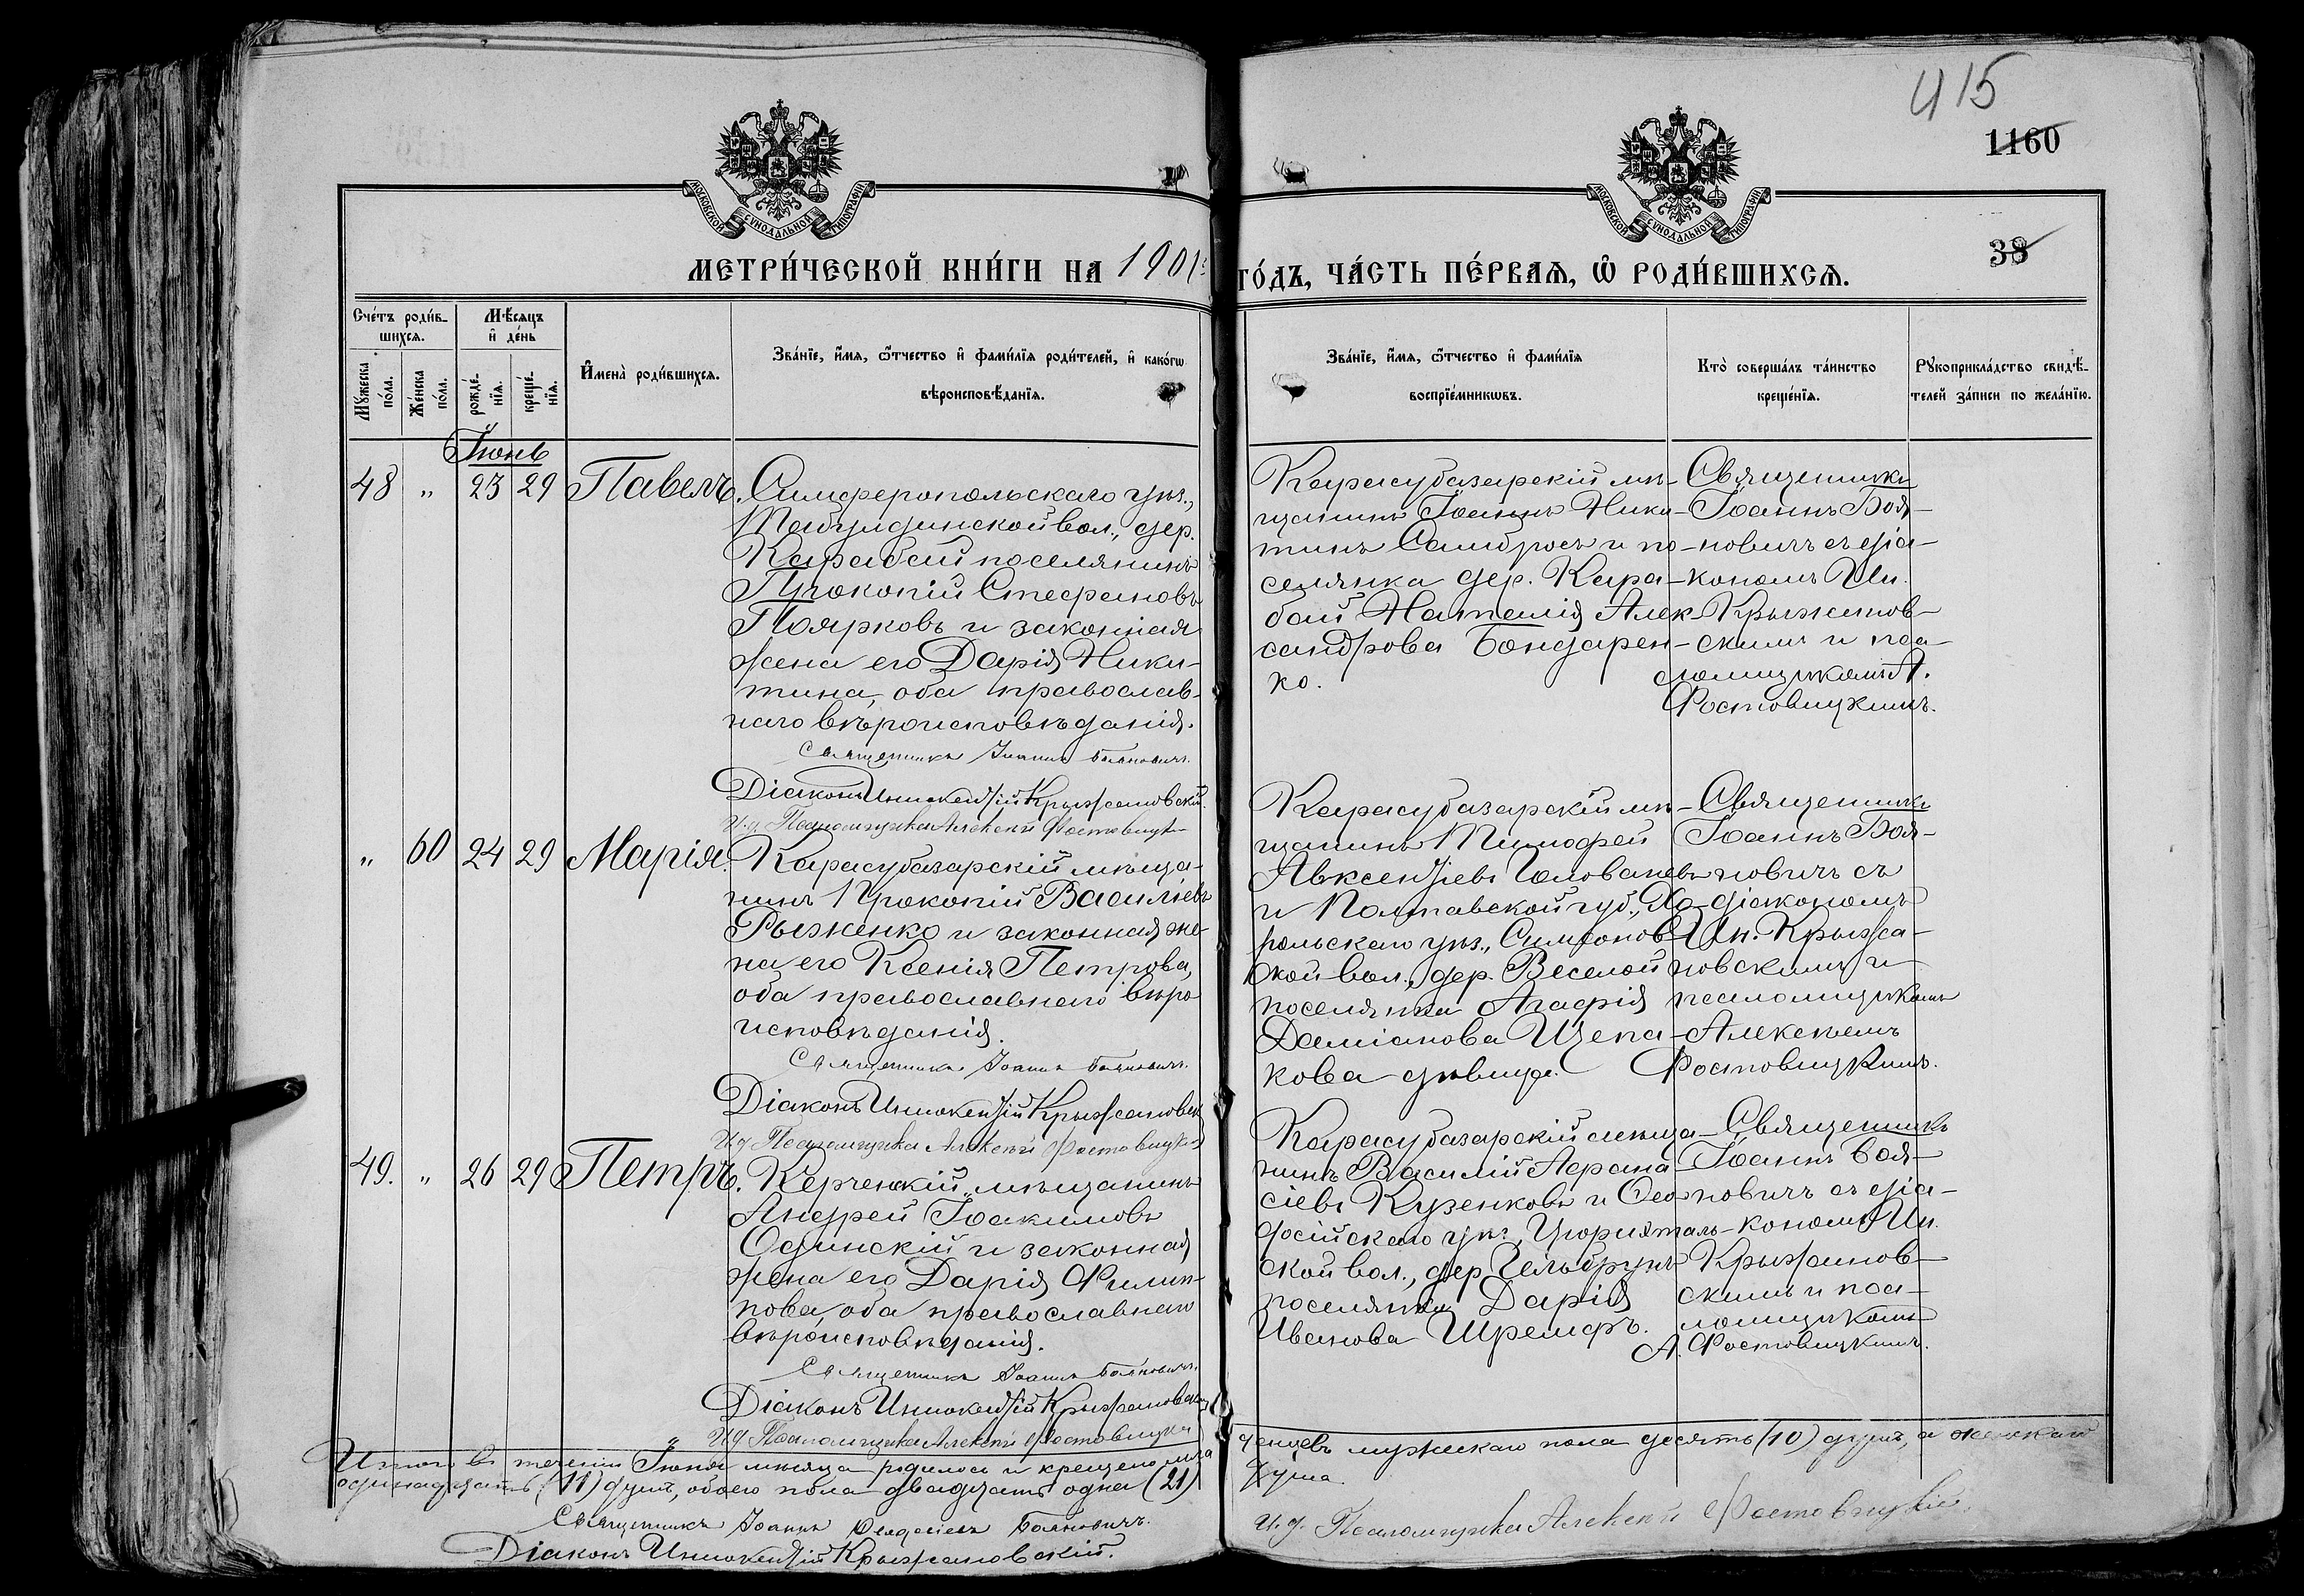 415
1160
38
МОСКОВСКОЙ СѴНОДАЛЬНОЙ ТИПОГРАФІИ
МОСКОВСКОЙ СѴНОДАЛЬНОЙ ТИПОГРАФІИ
МЕТРИ́ЧЕСКОЙ КНИ́ГИ НА 1901й
ГО́ДЪ, ЧА́СТЬ ПЕ́РВАѦ, Ѡ҆ РОДИ́ВШИХСѦ.
Сче́тъ роди́в-
шихсѧ.
Мѣ́сѧцъ
и҆ де́нь
Мꙋ́жеска
по́ла.
Же́нска
по́ла.
рожде́-
нїѧ.
креще́-
нїѧ.
И҆мена̀ роди́вшихсѧ.
Зва́нїе, и҆́мѧ, ѻ҆́тчество и҆ фами́лїѧ роди́телей, и҆ како́гѡ
вѣроисповѣ́данїѧ.
Зва́нїе, и҆́мѧ, ѻ҆́тчество и҆ фами́лїѧ
воспрїе́мникѡвъ.
Кто̀ соверша́лъ та́инство
креще́нїѧ.
Рꙋкоприкла́дство свидѣ́-
телей за́писи по жела́нїю.
Іюнь
48 " 23 29 Павелъ.
Симферопольскаго уѣз.,
Табулдинской вол., дер.
Карабай поселянинъ
Прокопій Стефановъ
Поярковъ и законная
жена его Дарія Ники-
тина, оба православ-
наго вѣроисповѣданія.
Священникъ Іоаннъ Бояновичъ.
Діаконъ Иннокентій Крыжановскій.
И.д. Псаломщика Алексѣй Фостовицкій
Карасубазарскій мѣ-
щанинъ Іоаннъ Ники-
тинъ Самбросъ и по-
селянка дер. Кара-
бай Наталія Алек-
сандрова Бондарен-
ко.
Священникъ
Іоаннъ Боя-
новичъ съ діа-
кономъ Ин.
Крыжанов-
скимъ и пса-
ломщикомъ А.
Фостовицкимъ.
" 60 24 29 Марія.
Карасубазарскій мѣща-
нинъ Прокопій Василіевъ
Рыженко и законная же-
на его Ксенія Петрова,
оба православнаго вѣро
исповѣданія.
Священникъ Іоаннъ Бояновичъ.
Діаконъ Иннокентій Крыжановскій
И.д. Псаломщика Алексѣй Фостовицкій
Карасубазарскій мѣ-
щанинъ Тимофей
Авксентіевъ Головачевъ
и Полтавской губ., Хо-
рольскаго уѣз., Симоонов-
ской вол., дер. Веселой
поселянка Агафія
Даміанова Цепа-
кова дѣвица.
Священникъ
Іоаннъ Боя-
новичъ съ
діакономъ
Ин. Крыжа-
новскимъ и
псаломщикомъ
Алексѣемъ
Фостовицкимъ.
49. " 26 29 Петръ.
Керченскій мѣщанинъ
Андрей Іоакимовъ
Одинскій и законная
жена его Дарія Филип-
пова, оба православнаго
вѣроисповѣданія.
Священникъ Іоаннъ Бояновичъ.
Діаконъ Иннокентій Крыжановскій
И.д. Псаломщика Алексѣй Фостовицкій
Карасубазарскій мѣща-
нинъ Василій Афана-
сіевъ Кузенковъ и Ѳео-
досійскаго уѣз., Цюрихталь-
ской вол., дер. Гельбрунъ
поселянка Дарія
Иванова Шремфъ.
Священникъ
Іоаннъ Боя-
новичъ съ діа-
кономъ Ин.
Крыжанов-
скимъ и пса-
ломщикомъ
А. Фостовицкимъ.
Итого въ теченіи Іюня мѣсяца родилось и крещено мла
денцевъ мужескаго пола десять (10) душъ, а женскаго
одинадцать (11) душъ, обоего пола двадцать одна (21)
душа.
Священникъ Іоаннъ Ѳеодосіевъ Бояновичъ.
Діаконъ Иннокентій Крыжановскій.
И.д. Псаломщика Алексѣй Фостовицкій.